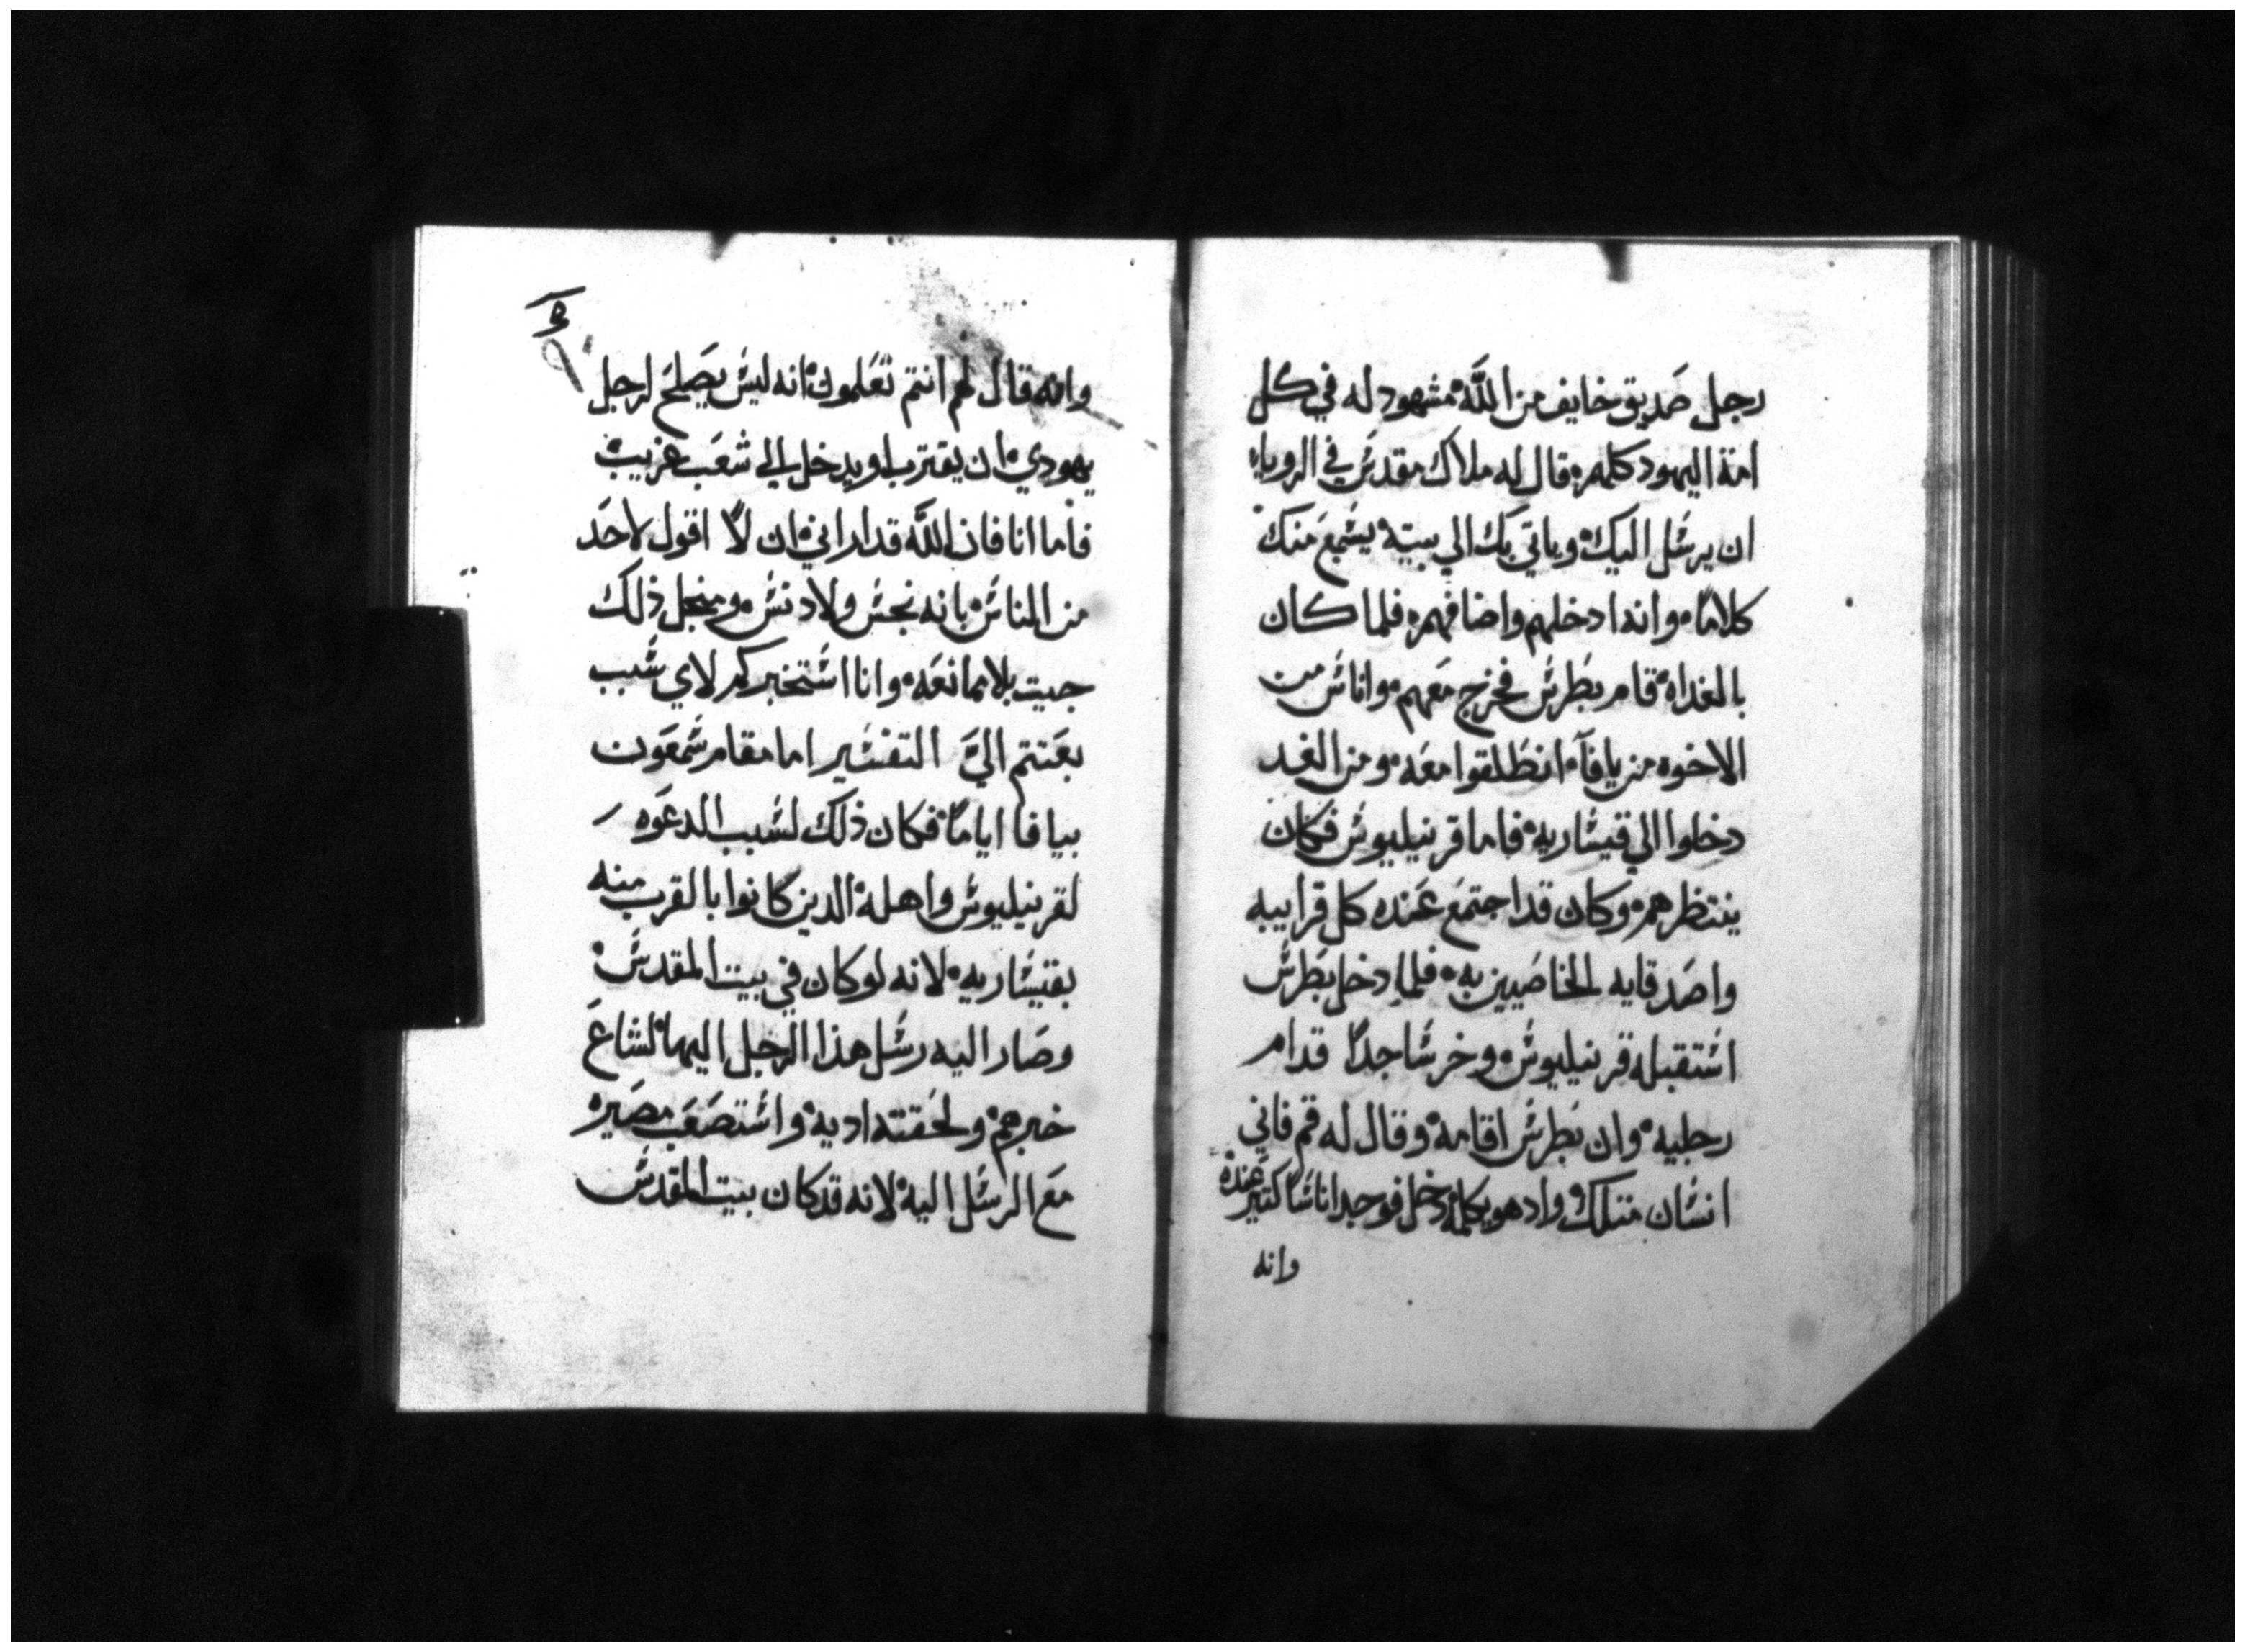 رجل صديق خايف من الله مشهود له في كل
امة اليهود كلهم قال له ملاك مقدس في الرويا
ان يرسل اليك وياتي بك الي بيته يسمع منك
كلامًا وانه ادخلهم واضافهم فلما كان
بالغداه قام بطرس فخرج معهم واناس من
الاخوه من يافا انطلقوا معه ومن الغد
دخلوا الي قيساريه فاما قرنيليوس فكان
ينتظرهم وكان قد اجتمع عنده كل قرابيه
واصدقايه الخاصيين به فلما دخل بطرس
استقبله قرنيليوس وخر ساجدًا قدام
رجليه وان بطرس اقامه وقال له قم فاني
انسان متلك واد هو يكلمه دخل فوجد اناسًا كتير عنده
وانه
وانه قال لهم انتم تعلمون انه ليس يصلح لرجل
يهودي ان يقترب او يدخل الي شعب غريب
فاما انا فان الله قد اراني ان لا اقول لاحد
من الناس بانه نجس ولا دنس ومن اجل ذلك
جيت بلا ممانعه وانا استخبركم لاي سبب
بعتتم الي التفسير اما مقام شمعون
بيافا ايامًا فكان ذلك لسبب الدعوه
لقرنيليوس واهله الدين كانوا بالقرب منه
بقيساريه لانه لو كان في بيت المقدس
وصار اليه رسل هذا الرجل اليها لشاع
خبرهم ولحقته اديه واستصعب مصيره
مع الرسل اليه لانه قد كان بيت المقدس